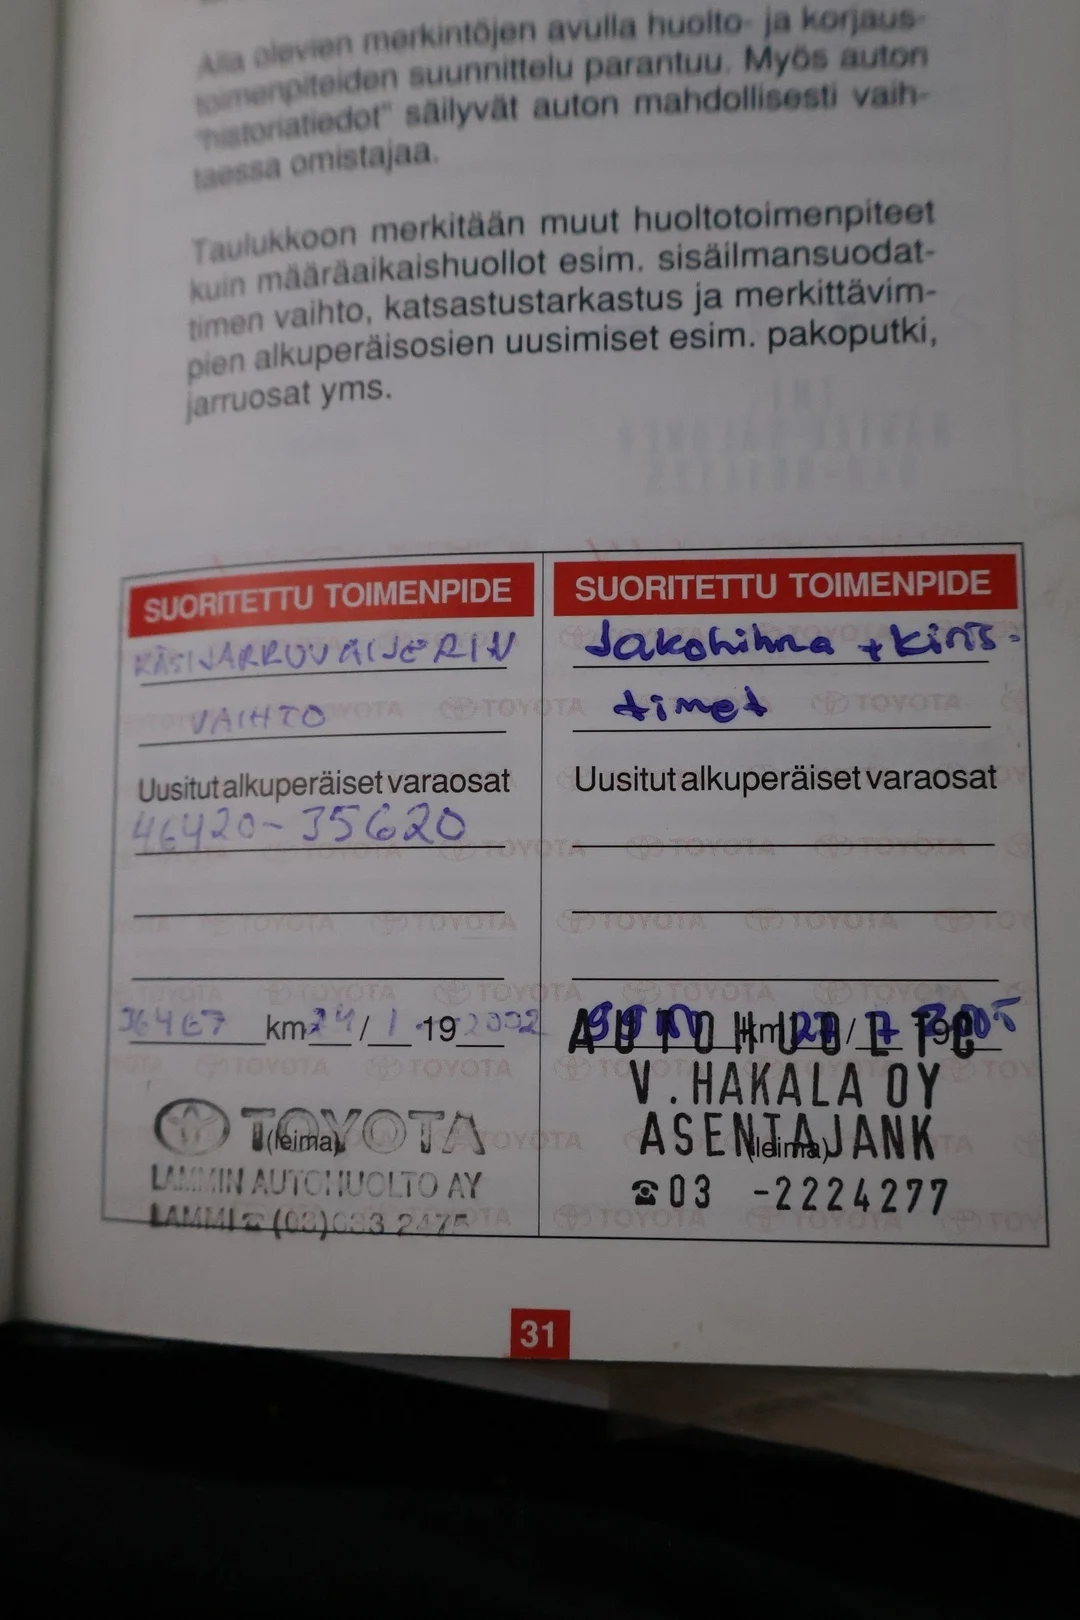 Alla olevien merkintöjen avulla huolto- ja korjaus-
toimenpiteiden suunnittelu parantuu. Myös auton
"historiatiedot" säilyvät auton mahdollisesti vaih-
taessa omistajaa.
Taulukkoon merkitään muut huoltotoimenpiteet
kuin määräaikaishuollot esim. sisäilmansuodat-
timen vaihto, katsastustarkastus ja merkittävim-
pien alkuperäisosien uusimiset esim. pakoputki,
jarruosat yms.
SUORITETTU TOIMENPIDE
KÄSIJARRUVAIJERIN
VAIHTO
Uusitut alkuperäiset varaosat
46420-35620
36467 km 24/1 19 2002
(leima)
TOYOTA
LAMMIN AUTOHUOLTO AY
LAMMI ☎ (03) 633 2475
SUORITETTU TOIMENPIDE
Jakohihna + kiris-
timet
Uusitut alkuperäiset varaosat
km 27/7 19 2005
AUTOHUOLTO
V.HAKALA OY
ASENTAJANK
(leima)
☎03 -2224277
31